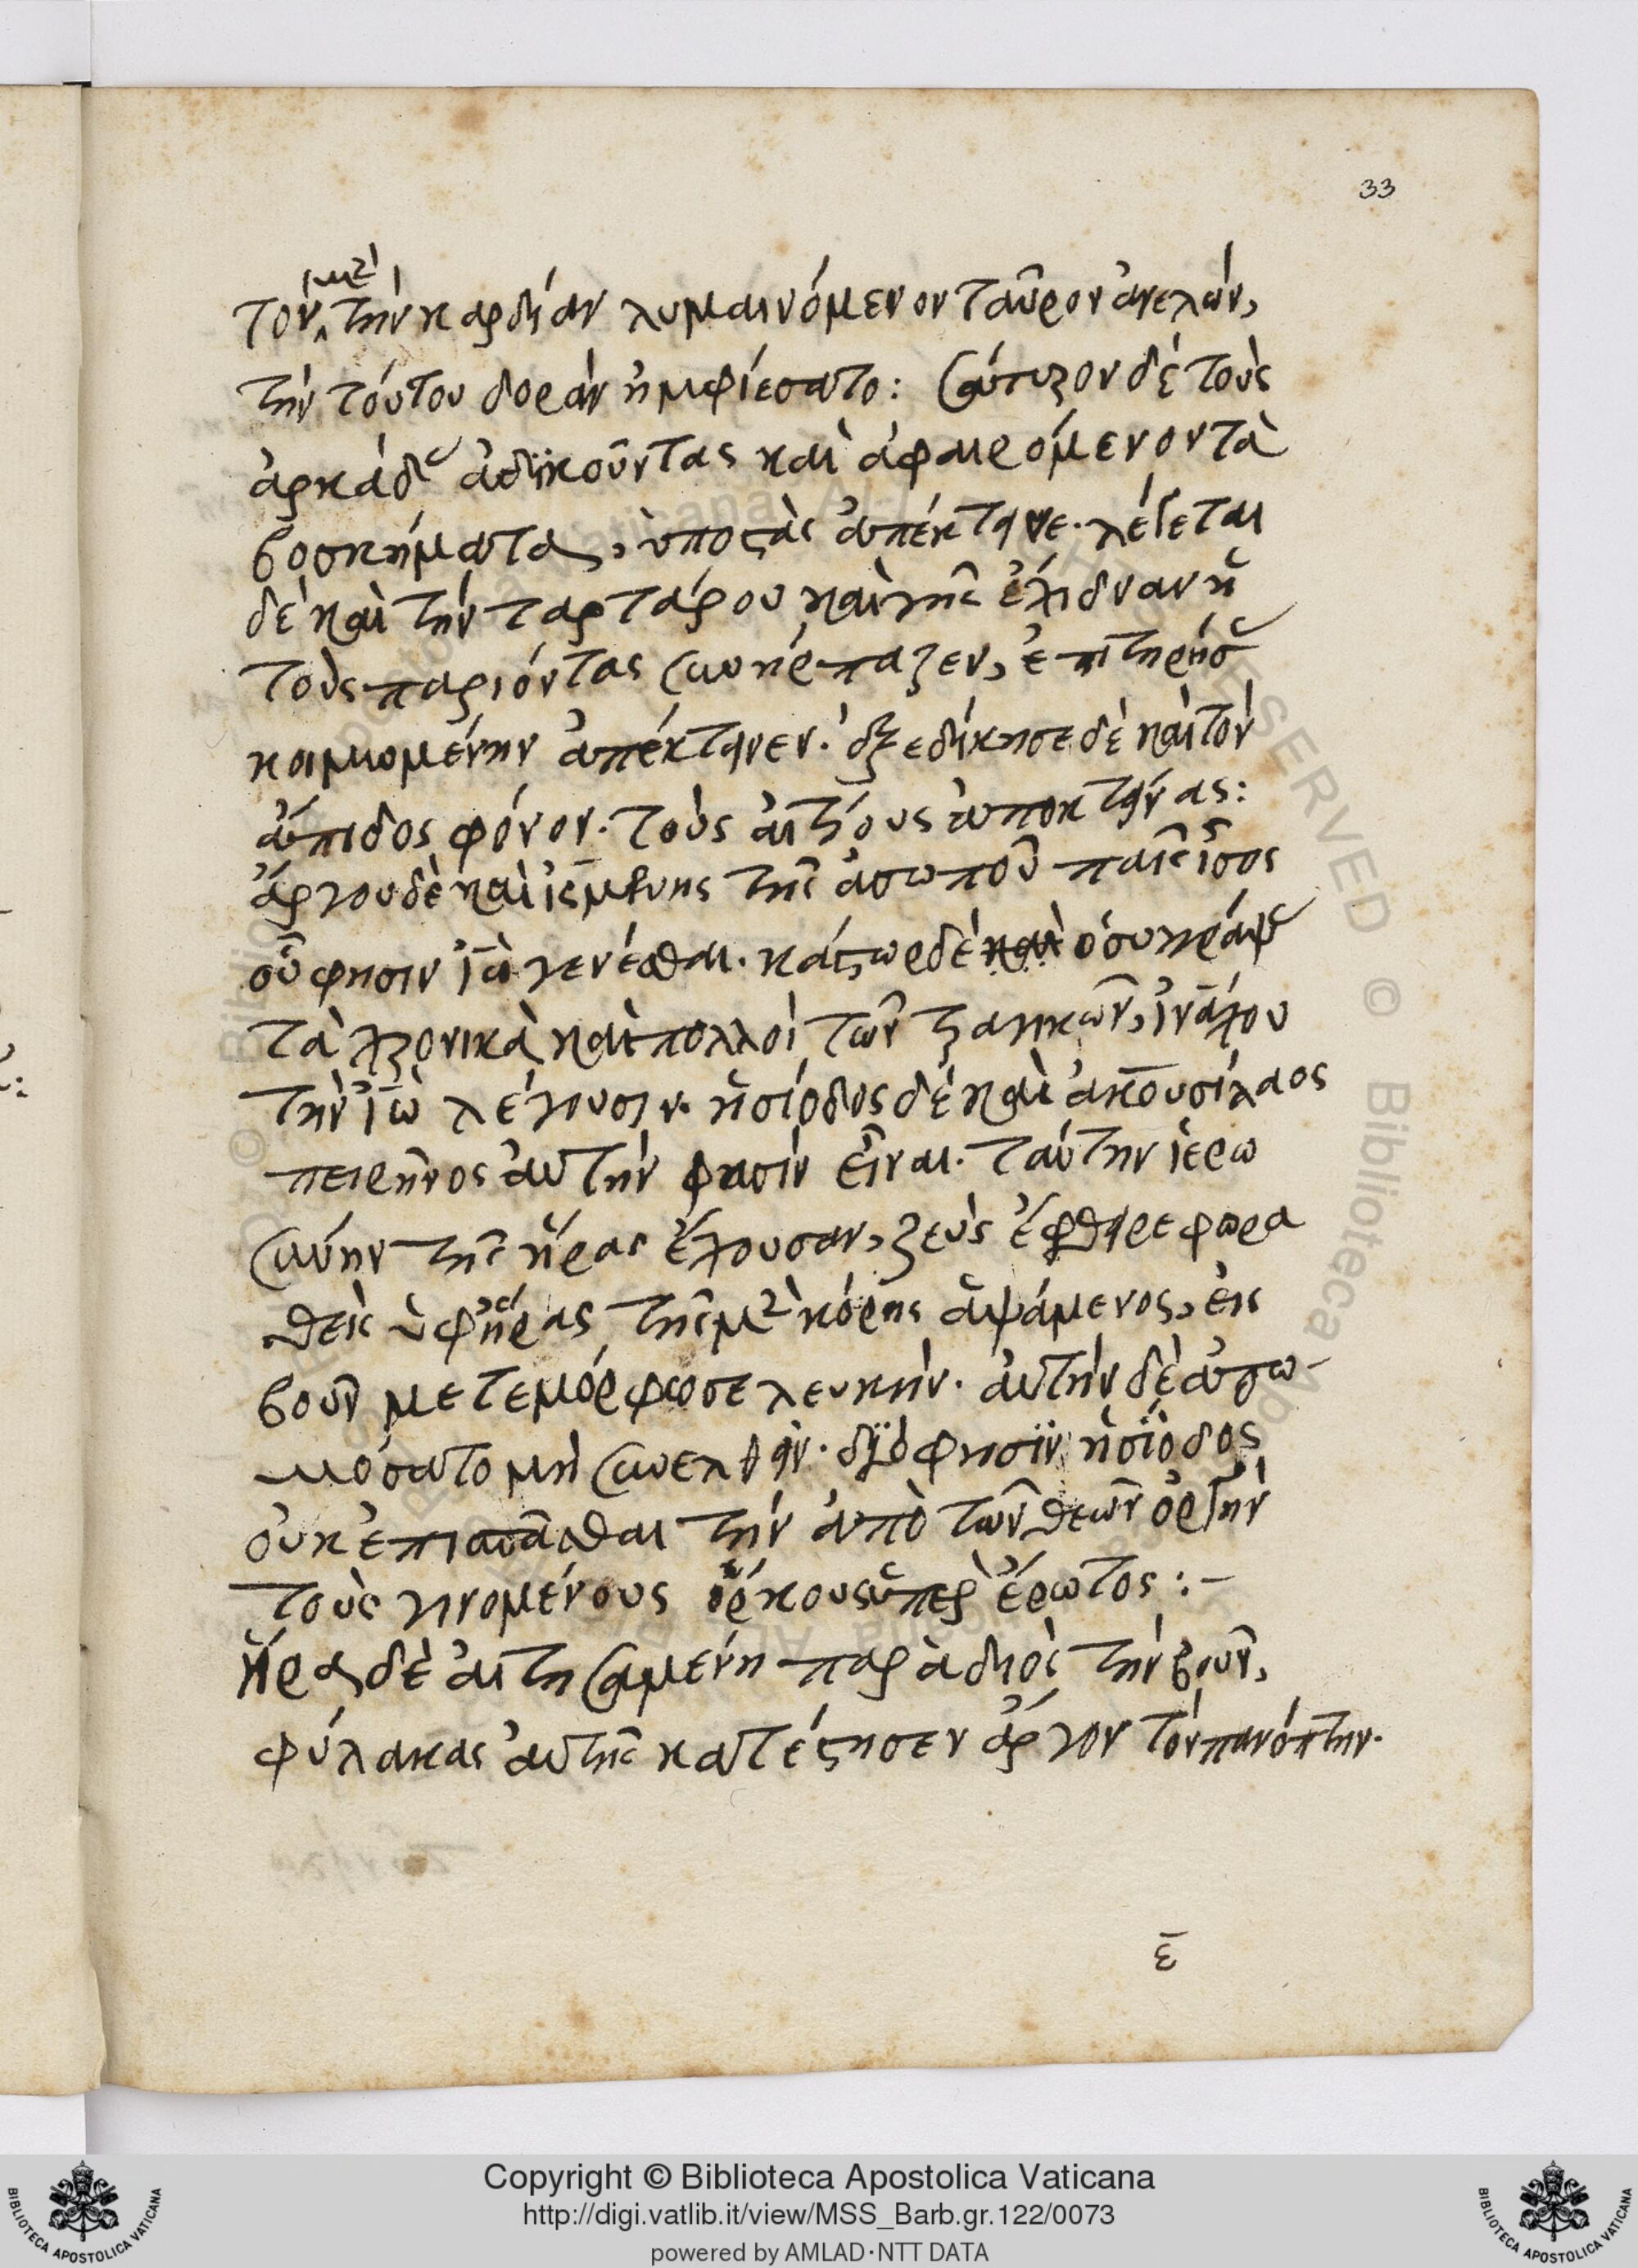 33
τὸν μὲν τὴν καρδίαν λυμαινόμενον ταῦρον ἀνελὼν,
τὴν τούτου δορὰν ἠμφιέσατο: σάτυρον δὲ τοὺς
ἀρκάδας ἀδϊκοῦντας καὶ ἀφαιρόμενον τὰ
βοσκήματα, ὑποστὰς ἀπέκτεινε. λέγεται
δὲ καὶ τὴν ταρτάρου καὶ γῆς ἔχιδναν ἣ
τοὺς παριόντας συνήρπαζεν, ἐπιτηρήσας
κοιμωμένην ἀπέκτεινεν. ἐξεδίκησε δὲ καὶ τὸν
ἄπιδος φόνον. τοὺς αἰτίους ἀποκτείνας:
ἄργου δὲ καὶ ἰσμήνης τῆς ἀσωποῦ παῖς ἶσος
οὗ φησιν ἰὼ γενέσθαι. κάστωρ δὲ καὶ ὁ συγράψας
τὰ χρονικὰ καὶ πολλοὶ τῶν τραγικῶν, ἰνάχου
τὴν ἰὼ λέγουσιν. ἡσίοδος δὲ καὶ ἀκουσίλαος
πειρῆνος αὐτήν φασιν εἶναι. ταύτην ἱερω
σύνην τῆς ἥρας ἔχουσαν, ζεὺς ἔφθειρε φωρα
θεὶς ὑφ' ἥρας τῆς μὲν κόρης ἁψάμενος, εἰς
βοῦν μετεμόρφωσε λευκήν. αὐτὴν δὲ ἀπω-
μόσατο μὴ συνελθεῖν. διό φησϊν ἡσίοδος
οὐκ ἐπισπᾶσθαι τὴν ἀπὸ τῶν θεῶν ὀργὴν
τοὺς γινομένους ὅρκους ὑπὲρ ἔρωτος: -
ἥρα δὲ αἰτησαμένη παρὰ διὸς τὴν βοῦν,
φύλακας αὐτῆς κατέστησεν ἄργον τὸν πανόπτην.
ε̄
Copyright © Biblioteca Apostolica Vaticana
http://digi.vatlib.it/view/MSS_Barb.gr.122/0073
powered by AMLAD·NTT DATA
BIBLIOTECA APOSTOLICA VATICANA
BIBLIOTECA APOSTOLICA VATICANA